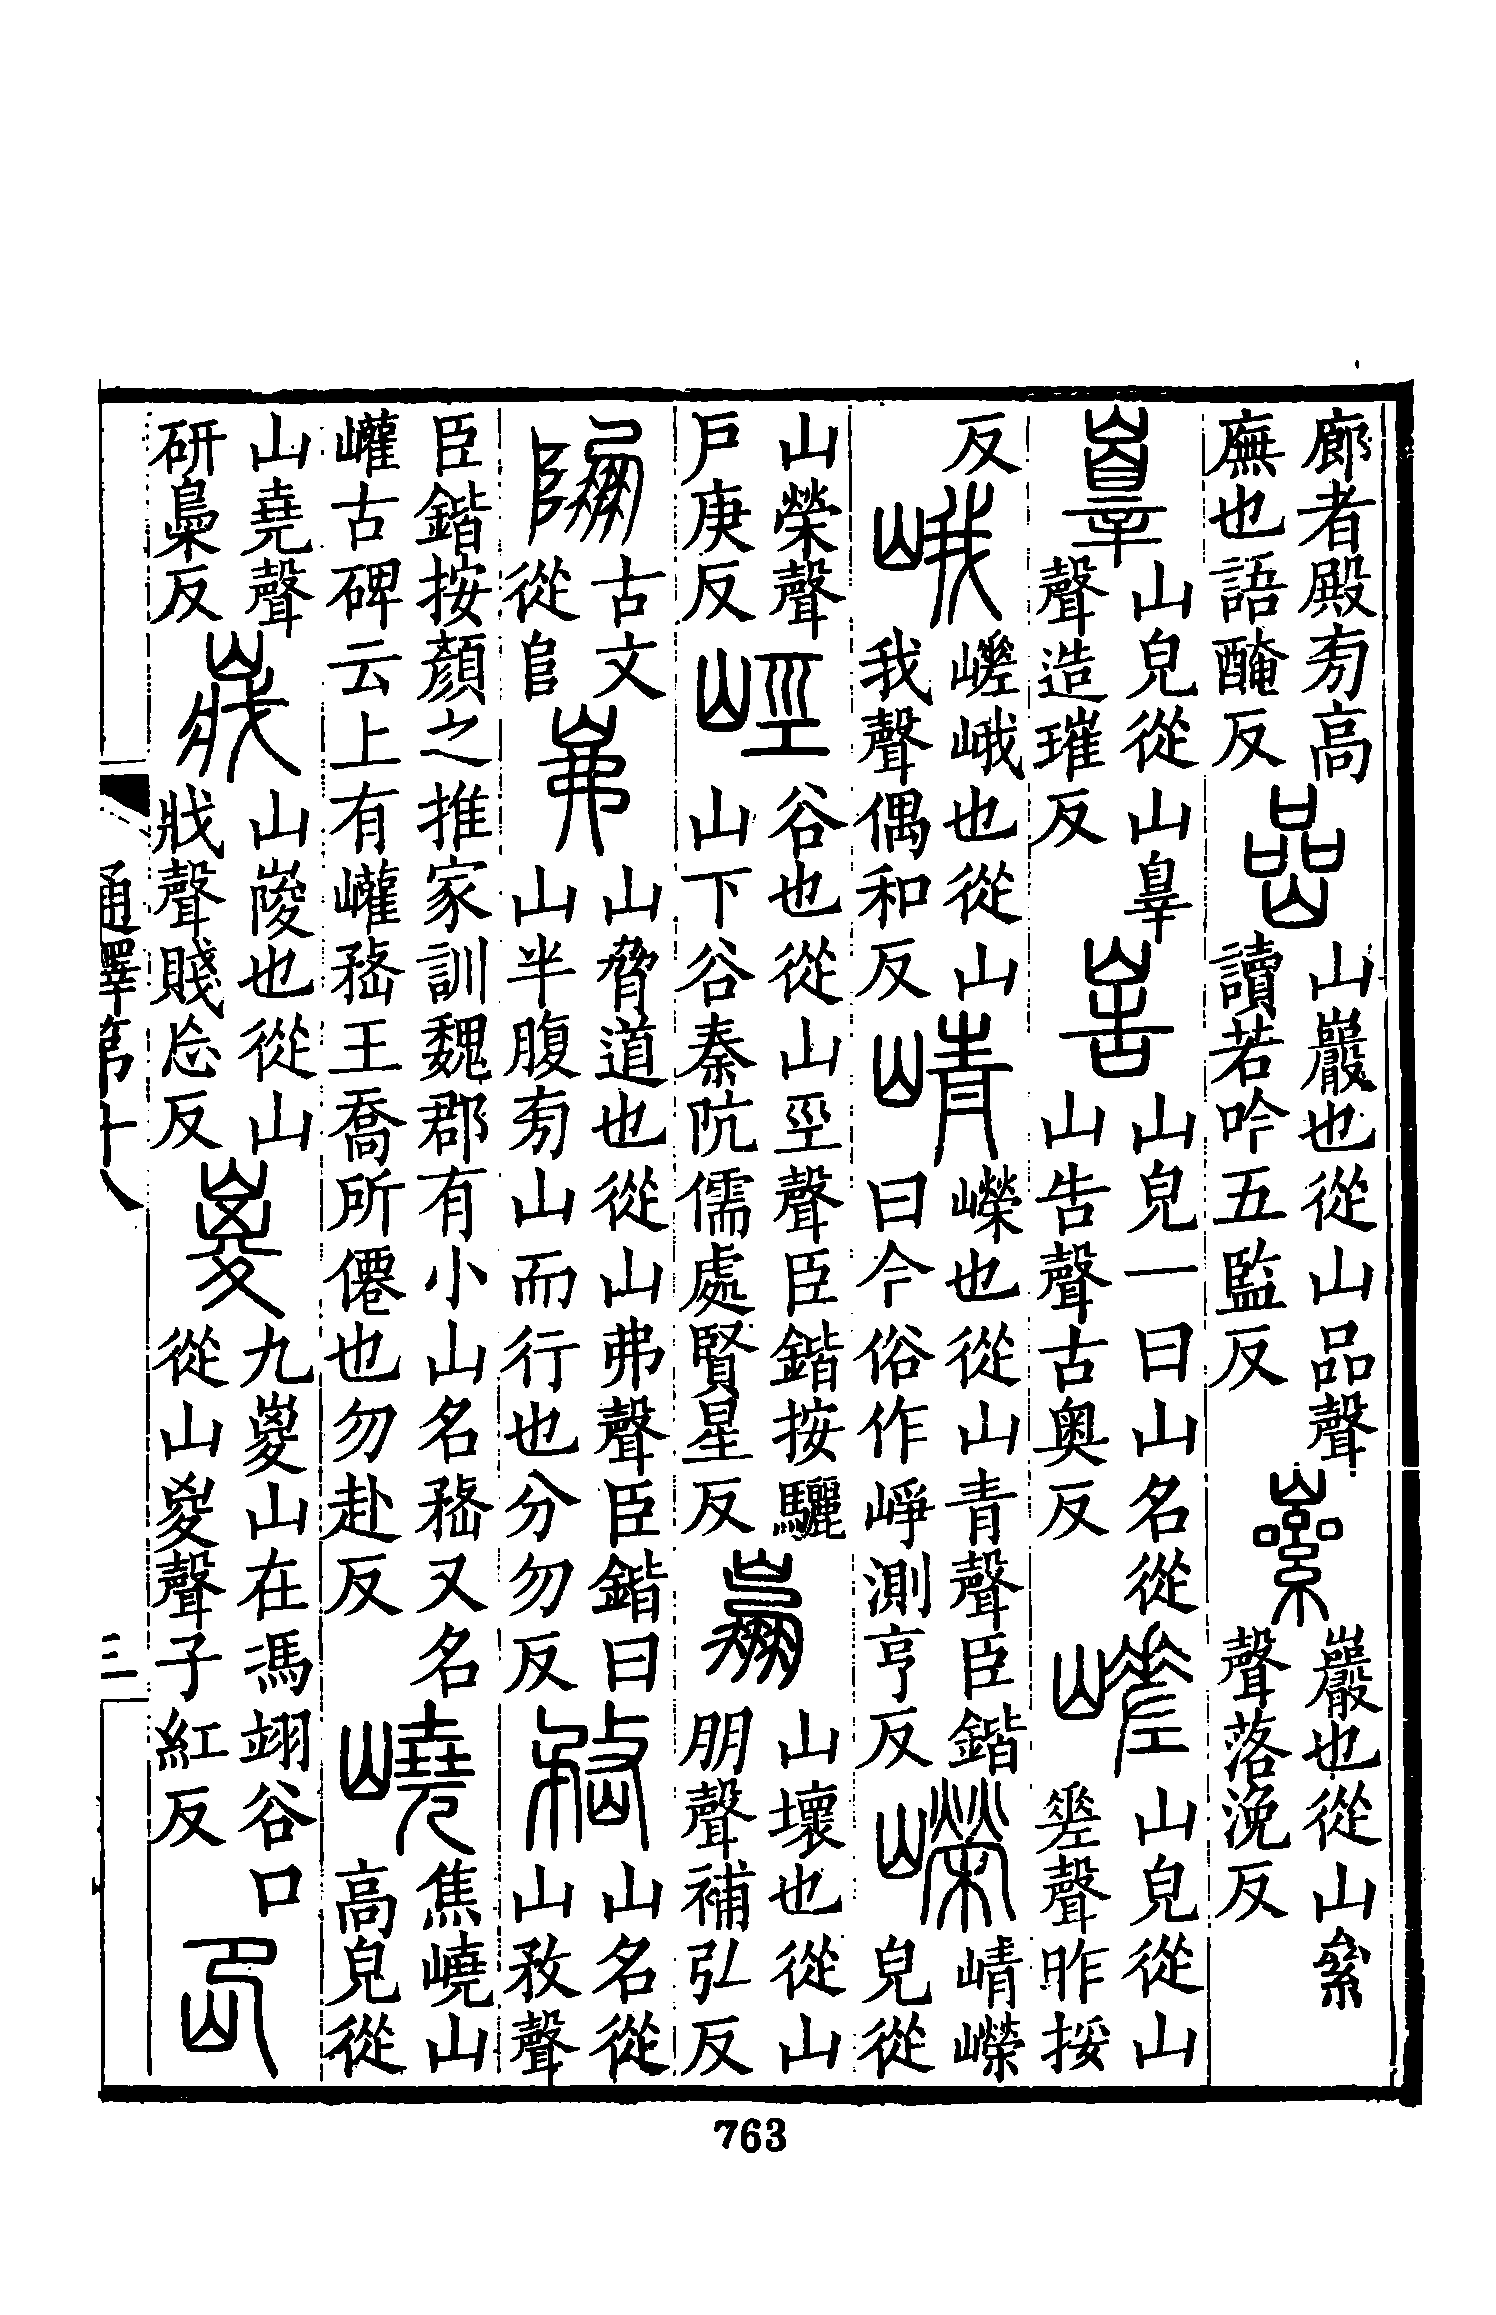 廊者殿㫄高
廡也語醃反
嵒
山巖也從山品聲
讀若吟五監反
巖也從山絫
聲落浼反
辠
山皃從山辠
聲造璀反
峼
山皃一曰山名從
山告聲古奥反
嵯
山皃從山
𢀩聲昨挼
反
峨
嵯峨也從山
我聲偶和反
崝
嶸也從山青聲臣鍇
曰今俗作崢測亨反
嶸
崝嶸
皃從
山榮聲
戶庚反
巠
谷也從山巠聲臣鍇按驪
山下谷秦阬儒處賢星反
崩
山壞也從山
朋聲補弘反
古文
從𨸏
岪
山脅道也從山弗聲臣鍇曰
山半腹㫄山而行也分勿反
嵍
山名從
山敄聲
臣鍇按顏之推家訓魏郡有小山名嵍又名
巏古碑云上有巏嵍王喬所僊也勿赴反
嶢
焦嶢山
高皃從
山堯聲
研梟反
山峻也從山
戕聲賤忩反
嵏
九嵏山在馮翊谷口
從山㚇聲子紅反
通釋第十八
三
763